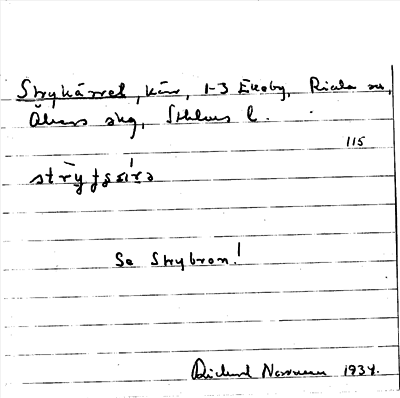 Strykärret, kärr, 1-3 Ekeby, Riala sn,
Åkers skg, Sthlms l.
115
Se Strybron!
Rickard Norrman 1934.